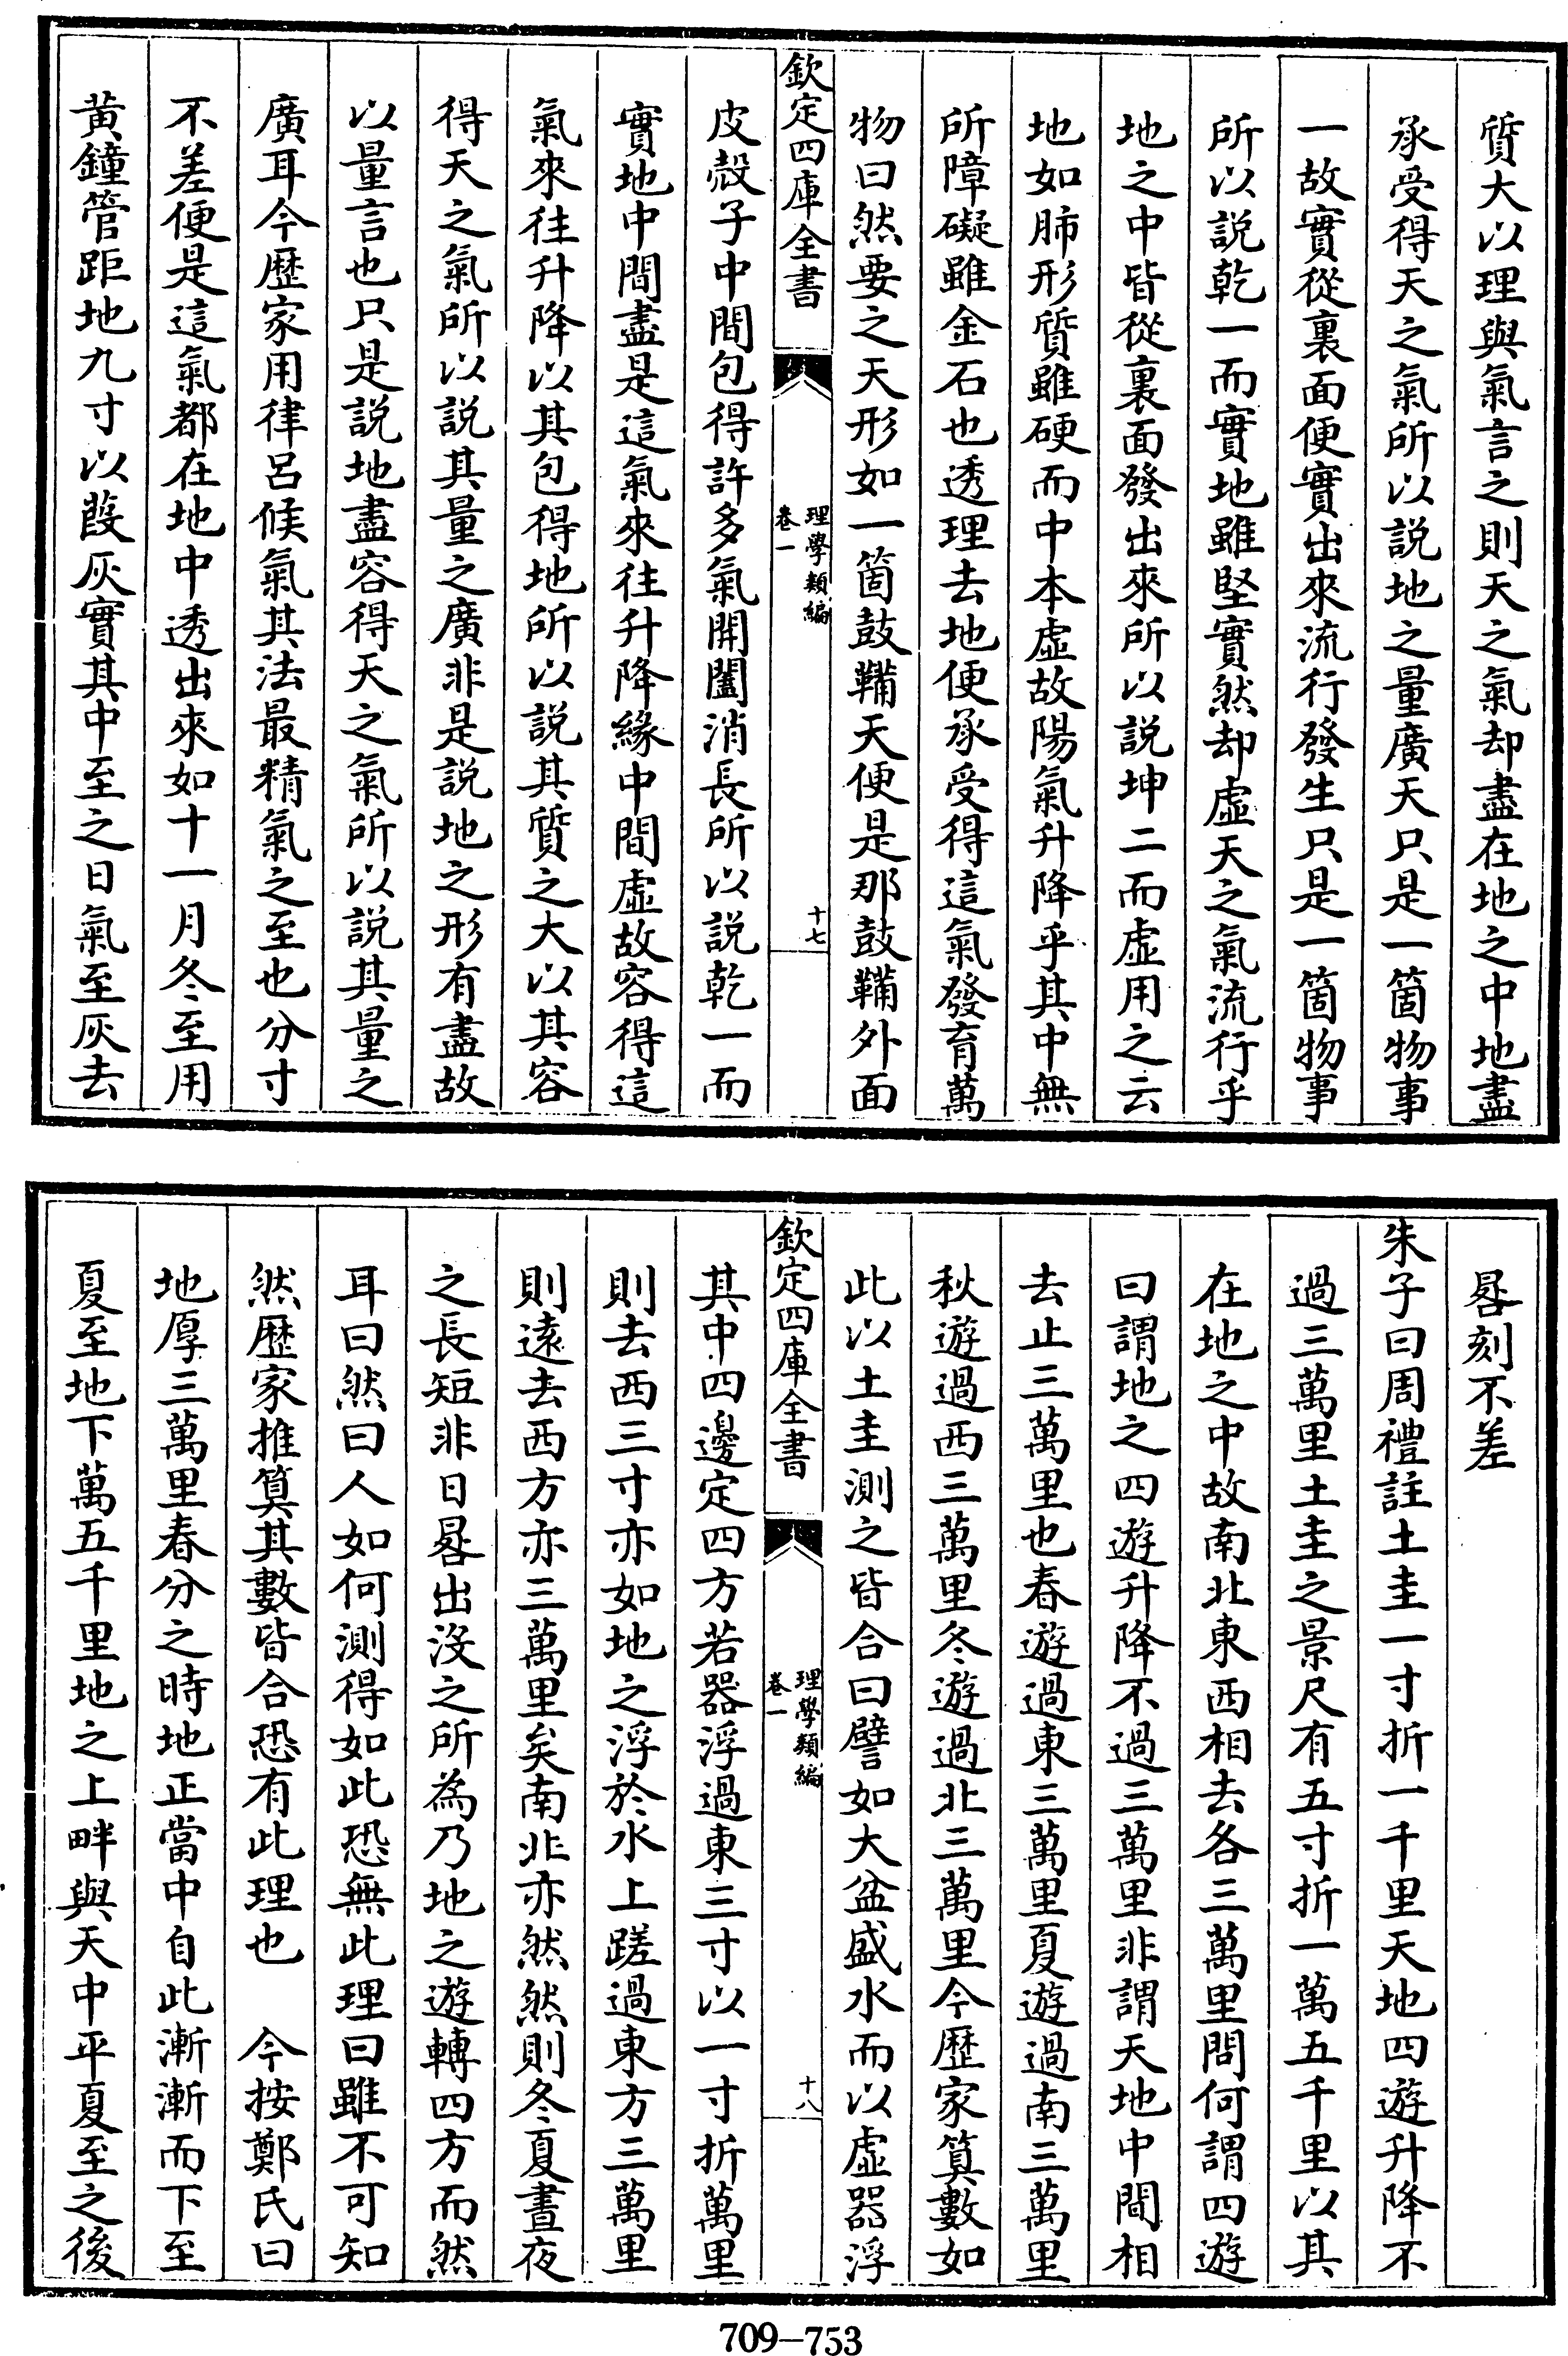 質大以理與氣言之則天之氣却盡在地之中地盡
承受得天之氣所以説地之量廣天只是一箇物事
一故實從裏面便實出來流行發生只是一箇物事
所以説乾一而實地雖堅實然却虛天之氣流行乎
地之中皆從裏面發出來所以説坤二而虛用之云
地如肺形質雖硬而中本虛故陽氣升降乎其中無
所障礙雖金石也透理去地便承受得這氣發育萬
物曰然要之天形如一箇鼓鞴天便是那鼓鞴外面
欽定四庫全書
理學類編
卷一
十七
皮殼子中間包得許多氣開闔消長所以説乾一而
實地中間盡是這氣來往升降緣中間虛故容得這
氣來往升降以其包得地所以説其質之大以其容
得天之氣所以説其量之廣非是説地之形有盡故
以量言也只是説地盡容得天之氣所以説其量之
廣耳今歴家用律呂候氣其法最精氣之至也分寸
不差便是這氣都在地中透出來如十一月冬至用
黄鐘管距地九寸以葭灰實其中至之日氣至灰去
晷刻不差
朱子曰周禮註土圭一寸折一千里天地四遊升降不
過三萬里土圭之景尺有五寸折一萬五千里以其
在地之中故南北東西相去各三萬里問何謂四遊
曰謂地之四遊升降不過三萬里非謂天地中間相
去止三萬里也春遊過東三萬里夏遊過南三萬里
秋遊過西三萬里冬遊過北三萬里今歴家算數如
此以土圭測之皆合曰譬如大盆盛水而以虛器浮
欽定四庫全書
理學類編
卷一
十八
其中四邊定四方若器浮過東三寸以一寸折萬里
則去西三寸亦如地之浮於水上蹉過東方三萬里
則遠去西方亦三萬里矣南北亦然然則冬夏晝夜
之長短非日晷出没之所為乃地之遊轉四方而然
耳曰然曰人如何測得如此恐無此理曰雖不可知
然歴家推算其數皆合恐有此理也　今按鄭氏曰
地厚三萬里春分之時地正當中自此漸漸而下至
夏至地下萬五千里地之上畔與天中平夏至之後
709-753